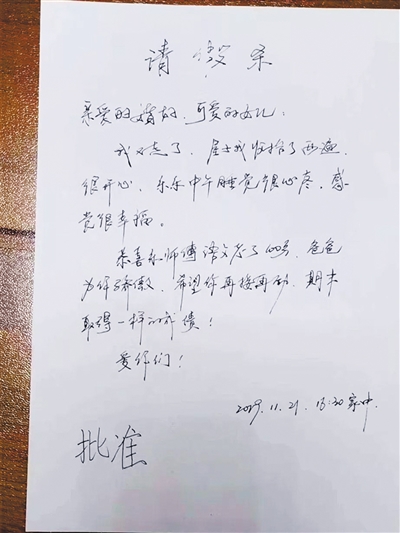 请假条
亲爱的 可爱的女儿:
我又走了,屋子我收拾了两遍,
很开心,乐乐中午睡觉很心疼,感
觉很幸福。
恭喜乐师傅语文考了100分,爸爸
为你骄傲,希望你再接再励,期末
取得一样的成绩!
爱你们!
2019.11.21. 家中.
批准